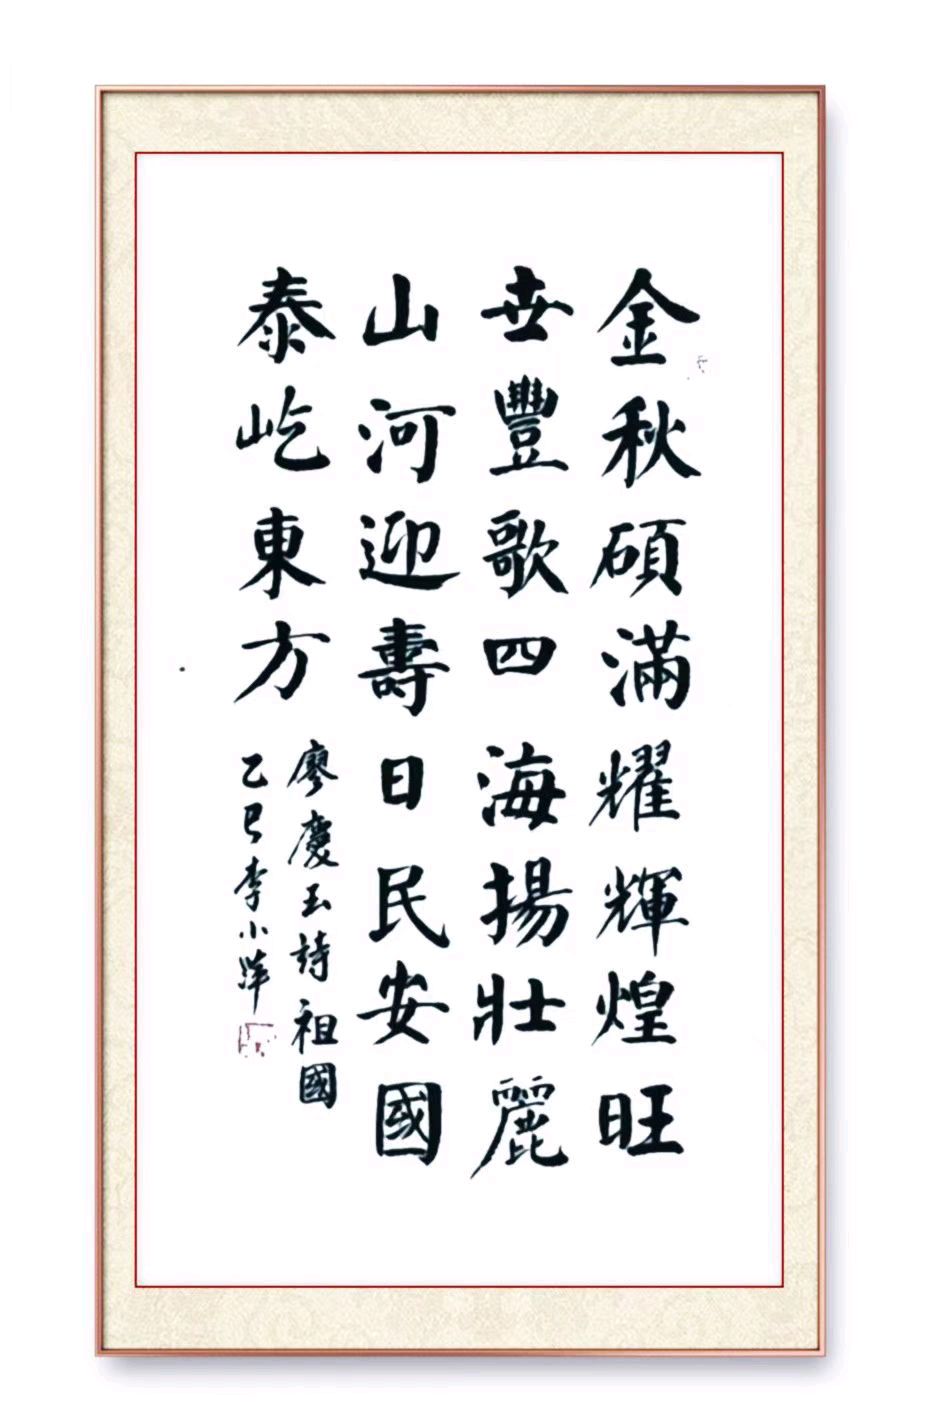 金秋碩滿耀輝煌旺
世豐歌四海揚壯麗
山河迎壽日民安國
泰屹東方
廖慶玉詩祖國
乙巳李小萍